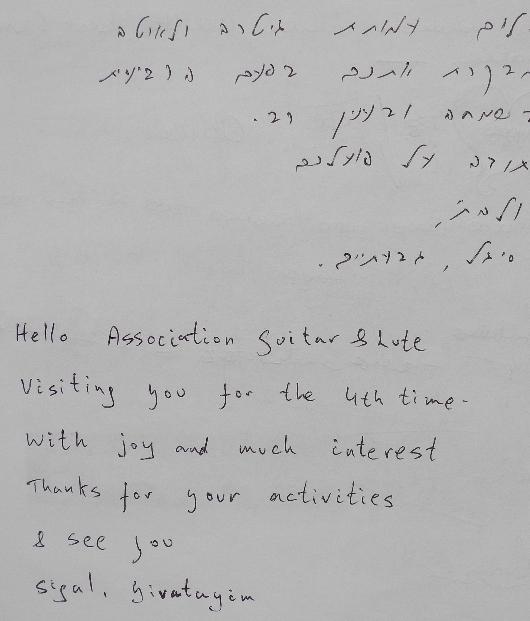 שלום עמותת גיטרה ולאוטה
מבקרת אתכם בפעם הרביעית
בשמחה ובעניין רב.
תודה על פועלכם
סיגל, גבעתיים.
Hello Association Guitar & Lute
Visiting you for the 4th time-
With joy and much interest
Thanks for your activities
& see you
Sigal, Givatayim